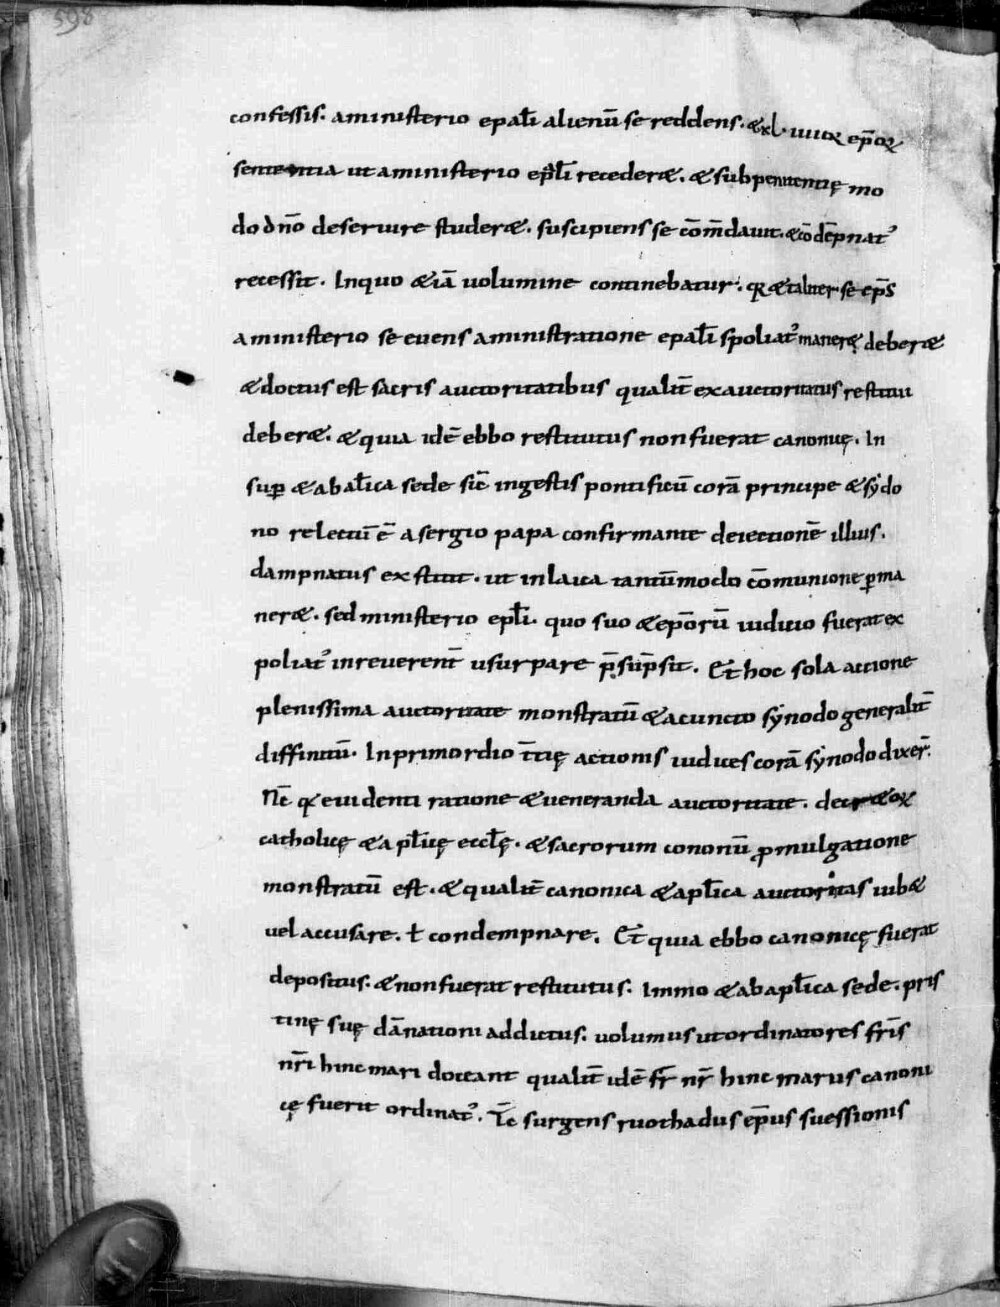 598
confessis. aministerio epał̄i alienū se reddens. & xl. iiiiꝝ ep̄oꝝ
sententia ut aministerio ep̄łi recederæ. & sub penitentię mo
do dn̄o deseruire studeræ. suscipiens se com̄dauit. & cōdēpnat᾽
recessit. In quo & iā uolumine continebatur. & taliter se ep̄s
aministerio se euens aministratione epał̄i spoliat᾽ maneræ deberæ
& doctus est sacris auctoritatibus qualit̄ ex auctoritatus restitui
deberæ. & quia idē ebbo restitutus non fuerat canonicę. In
suꝑ & ab ał̄ica sede sic̄ ingestis pontificū corā principe & sẏdo
no relectū ē a sergio papa confirmante deiectionē illius.
dampnatus exstitit. ut in laica tantūmodo cōmunione ꝑma
neræ. sed ministerio ep̄łi. quo suo & ep̄orū iudicio fuerat ex
poliat᾽ inreuerent̄ usurpare p̄sūp̄sit. Et hoc sola actione
plenissima auctoritate monstratū & acuncto sẏnodo generalit̄
diffinitū. In primordio t̄tię actionis iudices corā sẏnodo dixer̄.
Nc̄ qꝫ euidenti ratione & ueneranda auctoritate. decr&oꝝ
catholicę & apł̄icę eccł̄ę. & sacrorum cononū ꝓmulgatione
monstratū est. & qualit̄ canonica & apł̄ica auctoritas iubæ
uel accusare. ł condempnare. Et quia ebbo canonicę fuerat
depositus. & non fuerat restitutus. Immo & ab apł̄ica sede. pris
tinę suę dānationi addictus. uolumus ut ordinatores fr̄is
nr̄i hincmari doceant qualit̄ idē fr̄ nr̄ hincmarus canoni
cę fuerit ordinat᾽. Tc̄ surgens ruothadus ep̄us suessionis